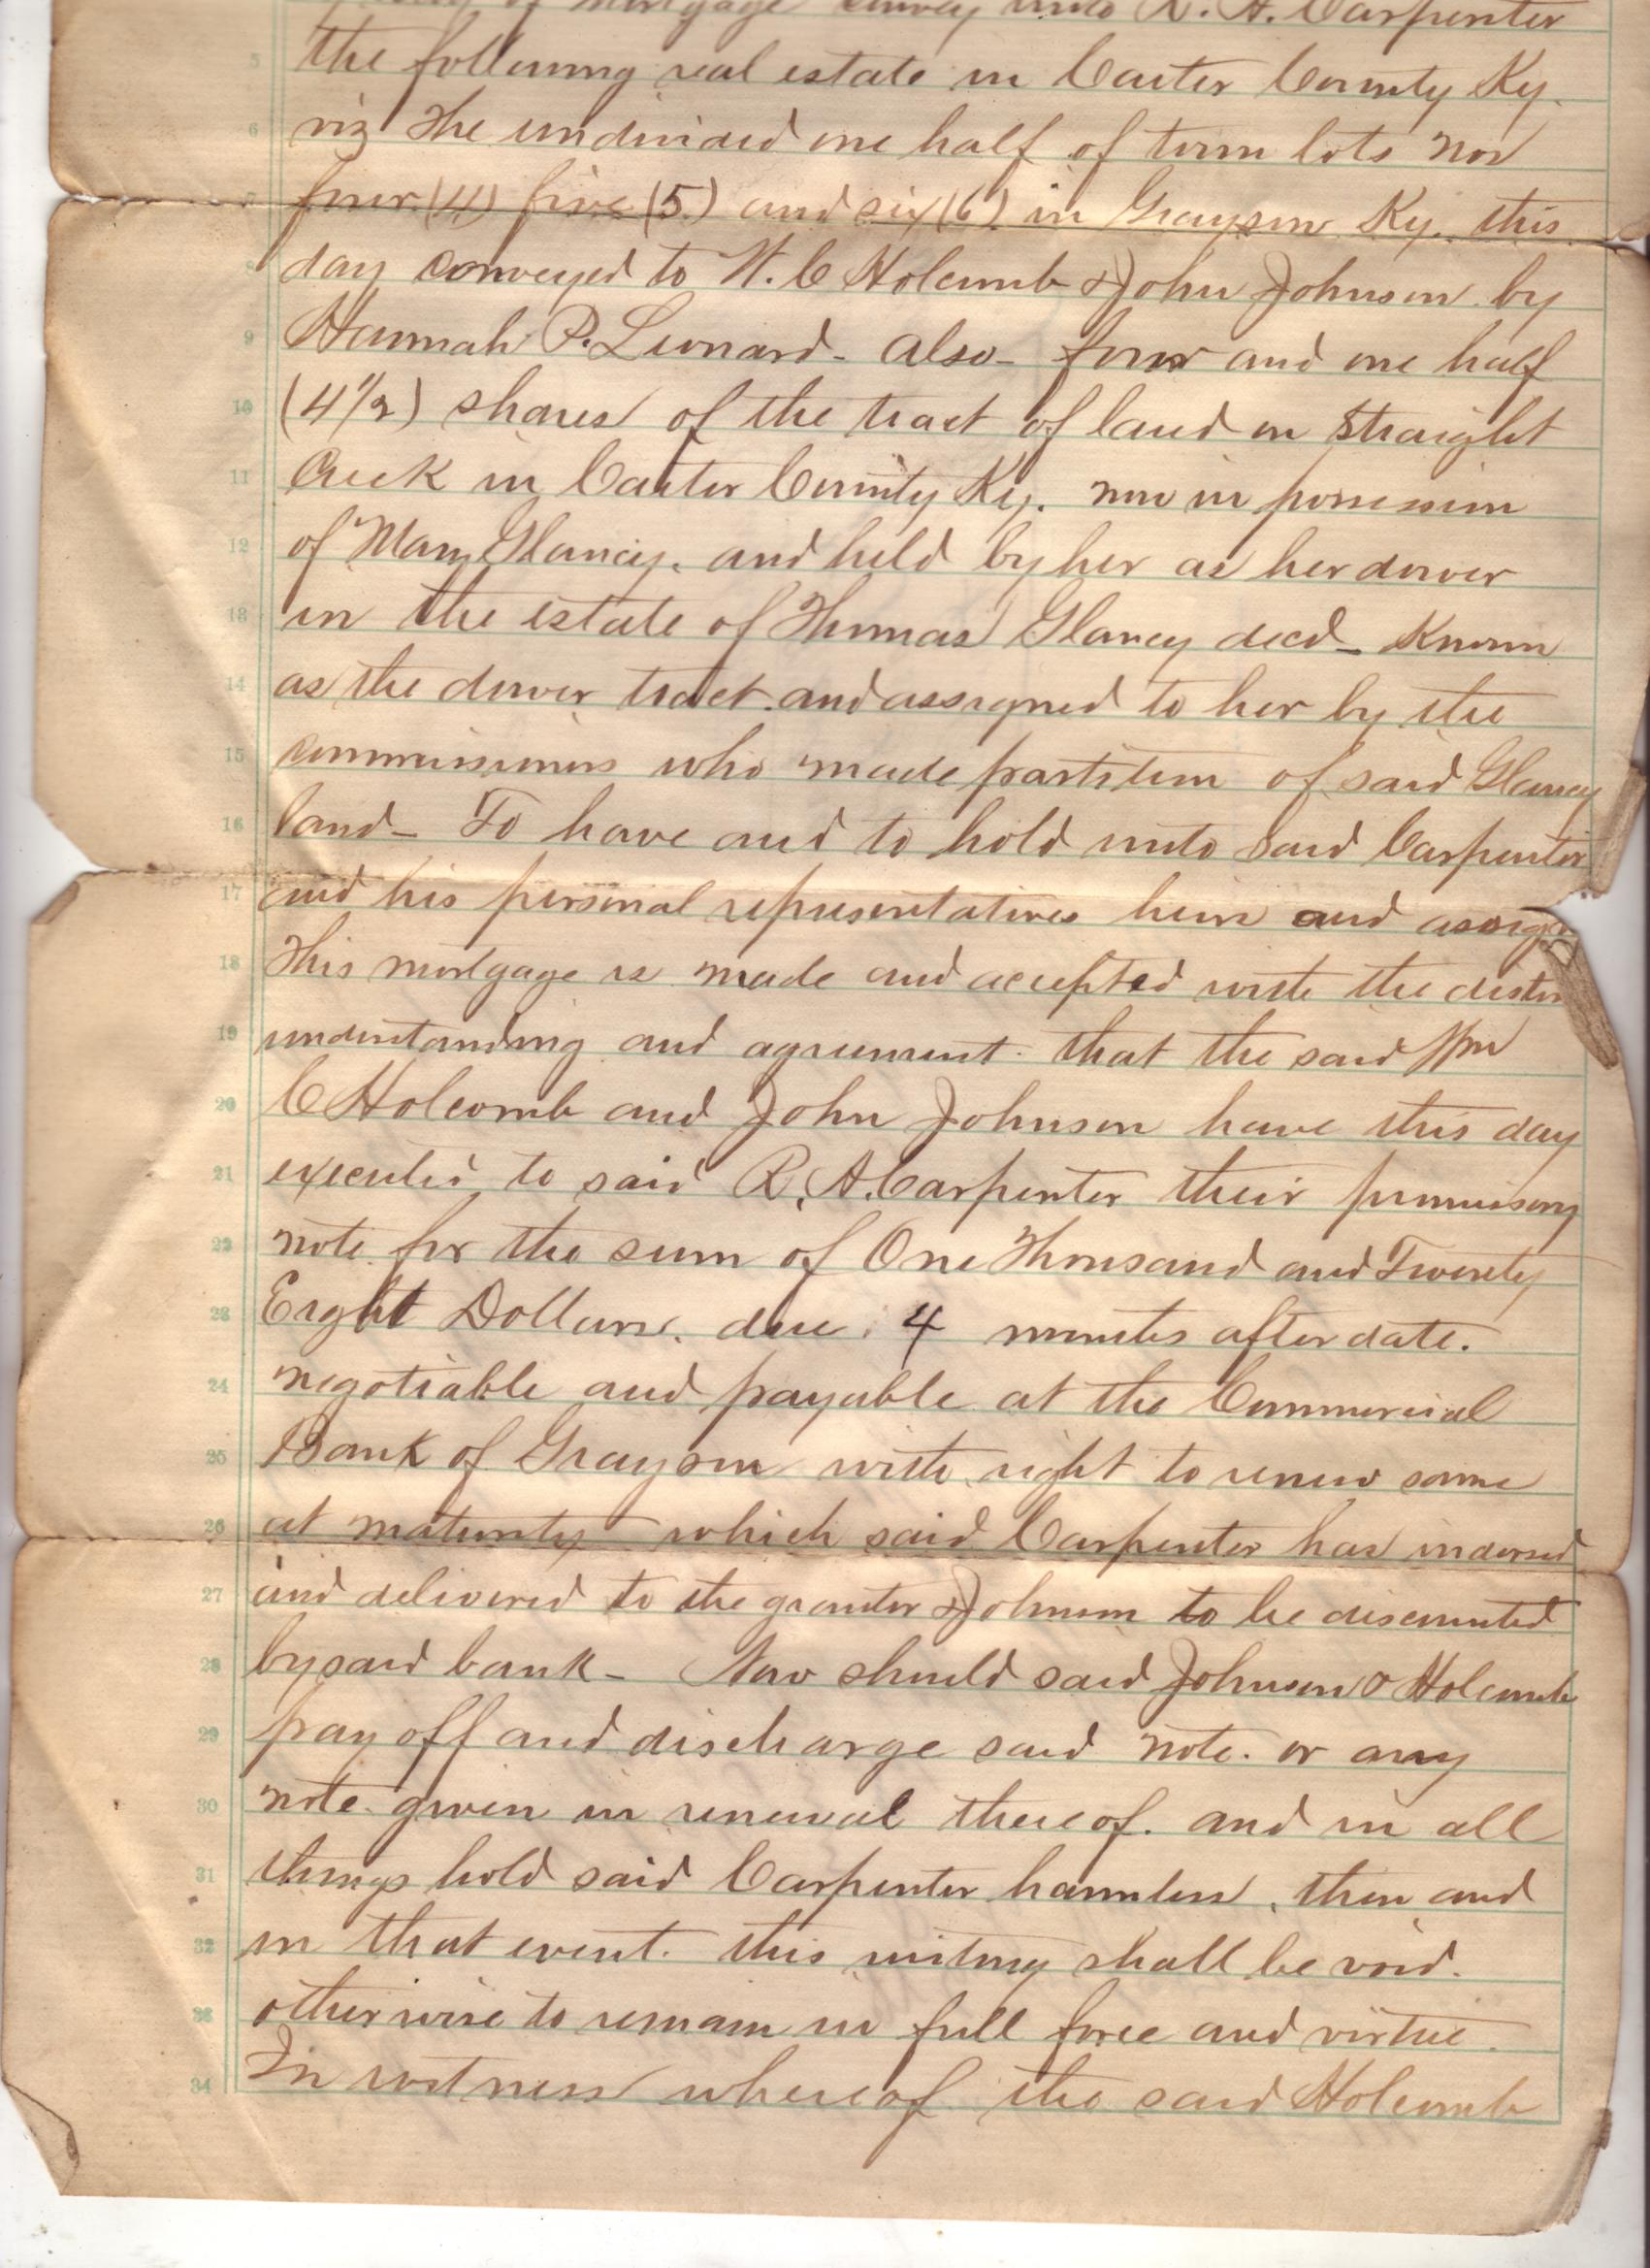 of mortgage convey unto R. A. Carpenter
5 the following real estate in Carter County Ky.
6 viz The undivided one half of town lots nos
7 four (4) five (5) and six (6) in Grayson Ky. this
8 day conveyed to W. C Holcomb & John Johnson by
9 Hannah P. Leonard - also - four and one half
10 (4 1/2) shares of the tract of land on Straight
11 Creek in Carter County Ky. now in possession
12 of Mary Glancy. and held by her as her dower
13 in the estate of Thomas Glancy decd - Known
14 as the dower tract. and assigned to her by the
15 commissioners who made partition of said Glancy
16 land - To have and to hold unto said Carpenter
17 and his personal representatives heirs and assigns
18 This mortgage is made and accepted with the distin
19 understanding and agreement. that the said Wm
20 C Holcomb and John Johnson have this day
21 executed to said R. A. Carpenter their promissory
22 note for the sum of One Thousand and Twenty
23 Eight Dollars. due 4 months after date.
24 negotiable and payable at the Commercial
25 Bank of Grayson with right to renew same
26 at maturity which said Carpenter has indorsed
27 and delivered to the grantor Johnson to be discounted
28 by said bank - Now should said Johnson & Holcomb
29 pay off and discharge said note. or any
30 note given in renewal thereof. and in all
31 things hold said Carpenter harmless, then and
32 in that event. this writing shall be void.
33 otherwise to remain in full force and virtue.
34 In witness whereof the said Holcomb